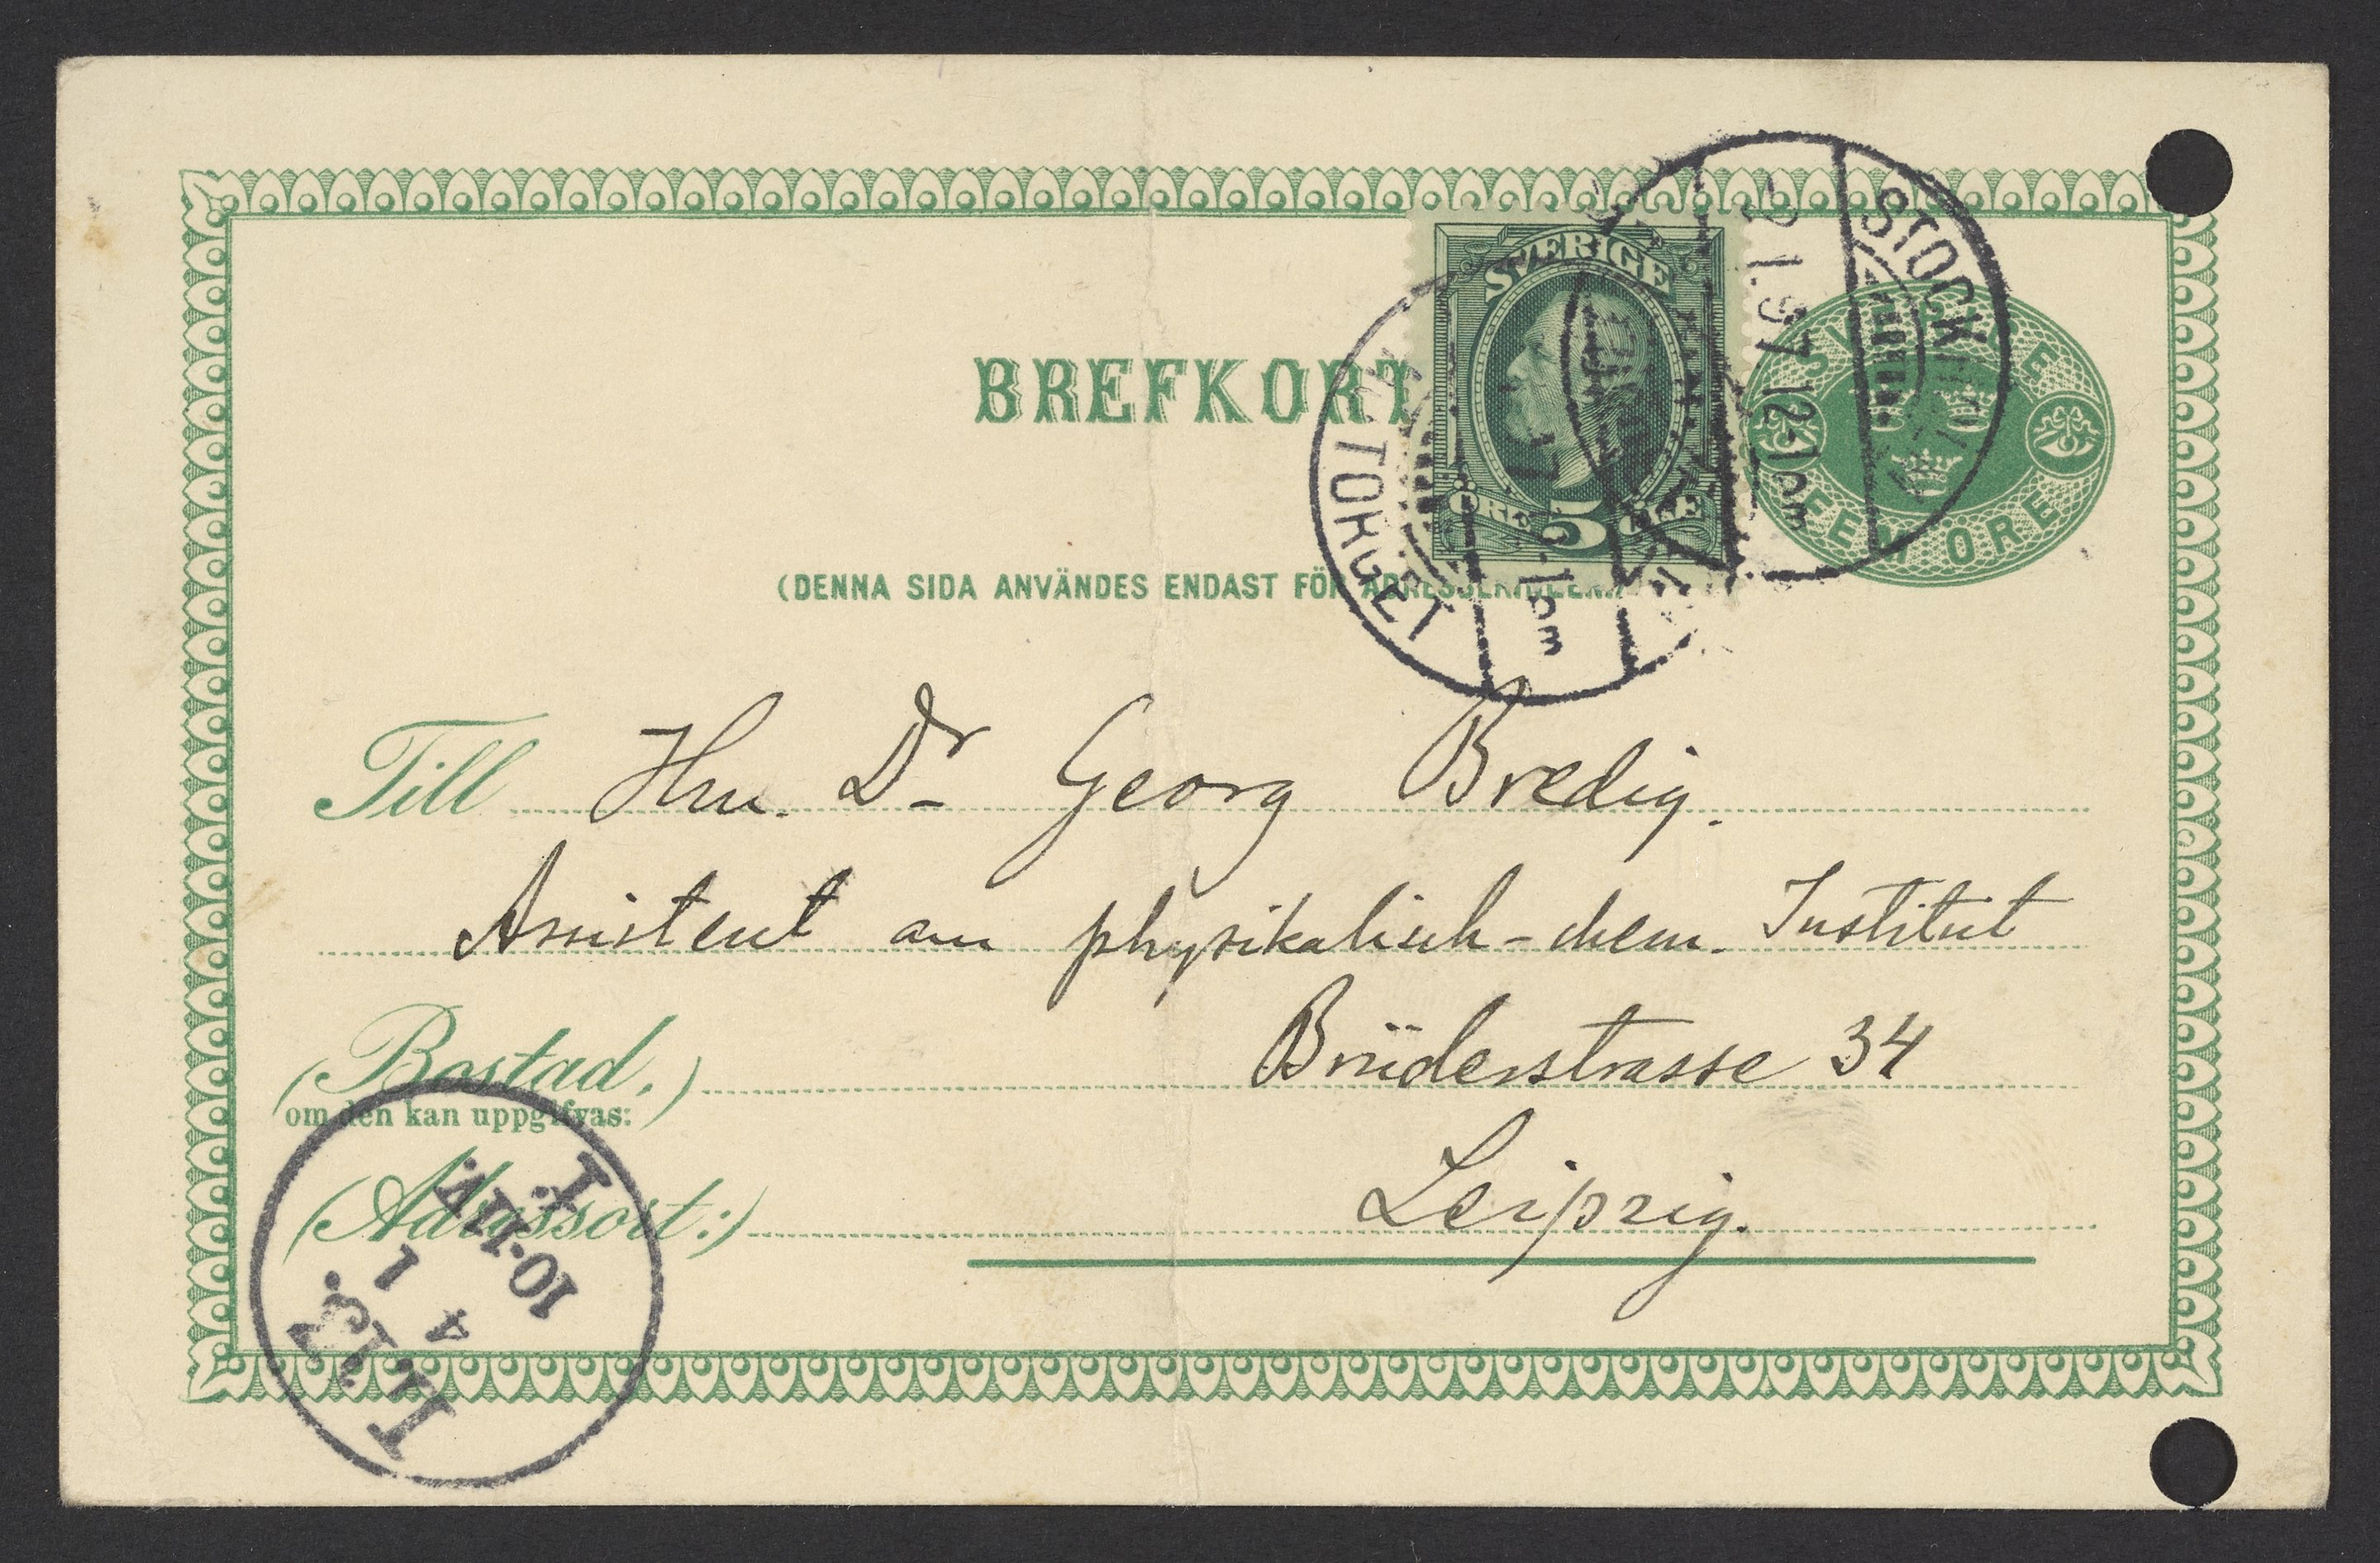 BREFKORT
SVERIGE
ÖRE 5 ÖRE
SVERIGE
FEM ÖRE
STOCKHOLM
2 1.97 12-1 pm
TORGET
1 pm
(DENNA SIDA ANVÄNDES ENDAST FÖR ADRESSERINGEN.)
Till Hrn. Dr Georg Bredig.
Assistent am physikalisch-chem. Institut
(Bostad,)
om den kan uppgifvas:
Brüderstrasse 34
(Adressort:) Leipzig.
4
1
10-11 V.